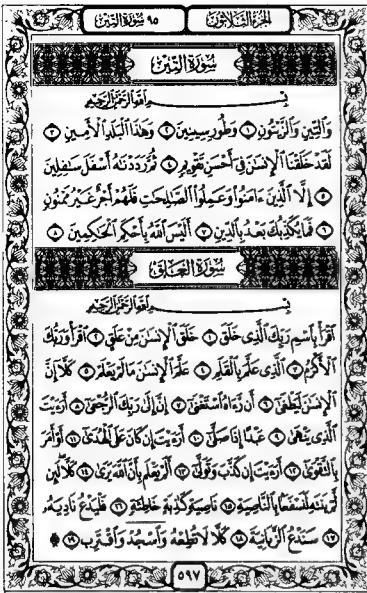 الجزء الثلاثون
٩٥ سورة التين
سُورَةُ التِّينِ
بِسْمِ ٱللَّهِ ٱلرَّحْمَٰنِ ٱلرَّحِيمِ
وَٱلتِّينِ وَٱلزَّيْتُونِ ١ وَطُورِ سِينِينَ ٢ وَهَٰذَا ٱلْبَلَدِ ٱلْأَمِينِ ٣
لَقَدْ خَلَقْنَا ٱلْإِنسَٰنَ فِىٓ أَحْسَنِ تَقْوِيمٍ ٤ ثُمَّ رَدَدْنَٰهُ أَسْفَلَ سَٰفِلِينَ
٥ إِلَّا ٱلَّذِينَ ءَامَنُوا۟ وَعَمِلُوا۟ ٱلصَّٰلِحَٰتِ فَلَهُمْ أَجْرٌ غَيْرُ مَمْنُونٍ
٦ فَمَا يُكَذِّبُكَ بَعْدُ بِٱلدِّينِ ٧ أَلَيْسَ ٱللَّهُ بِأَحْكَمِ ٱلْحَٰكِمِينَ ٨
سُورَةُ العَلَقِ
بِسْمِ ٱللَّهِ ٱلرَّحْمَٰنِ ٱلرَّحِيمِ
ٱقْرَأْ بِٱسْمِ رَبِّكَ ٱلَّذِى خَلَقَ ١ خَلَقَ ٱلْإِنسَٰنَ مِنْ عَلَقٍ ٢ ٱقْرَأْ وَرَبُّكَ
ٱلْأَكْرَمُ ٣ ٱلَّذِى عَلَّمَ بِٱلْقَلَمِ ٤ عَلَّمَ ٱلْإِنسَٰنَ مَا لَمْ يَعْلَمْ ٥ كَلَّآ إِنَّ
ٱلْإِنسَٰنَ لَيَطْغَىٰٓ ٦ أَن رَّءَاهُ ٱسْتَغْنَىٰٓ ٧ إِنَّ إِلَىٰ رَبِّكَ ٱلرُّجْعَىٰٓ ٨ أَرَءَيْتَ
ٱلَّذِى يَنْهَىٰ ٩ عَبْدًا إِذَا صَلَّىٰٓ ١٠ أَرَءَيْتَ إِن كَانَ عَلَى ٱلْهُدَىٰٓ ١١ أَوْ أَمَرَ
بِٱلتَّقْوَىٰٓ ١٢ أَرَءَيْتَ إِن كَذَّبَ وَتَوَلَّىٰٓ ١٣ أَلَمْ يَعْلَم بِأَنَّ ٱللَّهَ يَرَىٰ ١٤ كَلَّا لَئِن
لَّمْ يَنتَهِ لَنَسْفَعًۢا بِٱلنَّاصِيَةِ ١٥ نَاصِيَةٍ كَٰذِبَةٍ خَاطِئَةٍ ١٦ فَلْيَدْعُ نَادِيَهُۥ
١٧ سَنَدْعُ ٱلزَّبَانِيَةَ ١٨ كَلَّا لَا تُطِعْهُ وَٱسْجُدْ وَٱقْتَرِب ۩ ١٩
٥٩٧